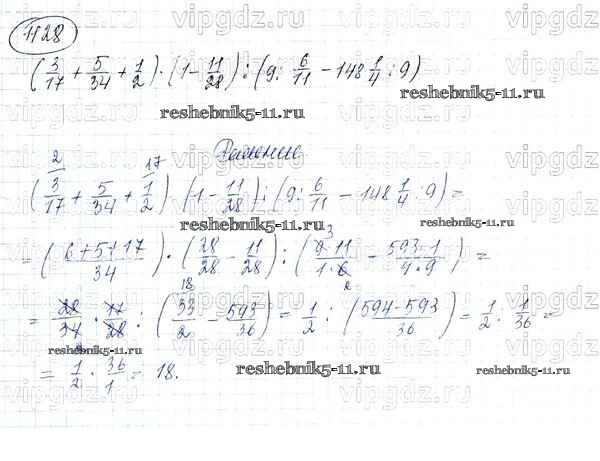 1128
(3/17 + 5/34 + 1/2) · (1 − 11/28) : (9 : 6/11 − 148 1/4 : 9)
reshebnik5-11.ru
reshebnik5-11.ru
Решение
2 17
(3/17 + 5/34 + 1/2) (1 − 11/28) : (9 : 6/11 − 148 1/4 : 9) =
reshebnik5-11.ru
reshebnik5-11.ru
= ((6+5+17)/34) · (28/28 − 11/28) : ((9·11)/(1·6) − (593·1)/(4·9)) =
3 2
18
= 28/34 · 17/28 : (33/2 − 593/36) = 1/2 : ((594−593)/36) = 1/2 : 1/36 =
= 1/2 · 36/1 = 18.
reshebnik5-11.ru
reshebnik5-11.ru
vipgdz.ru